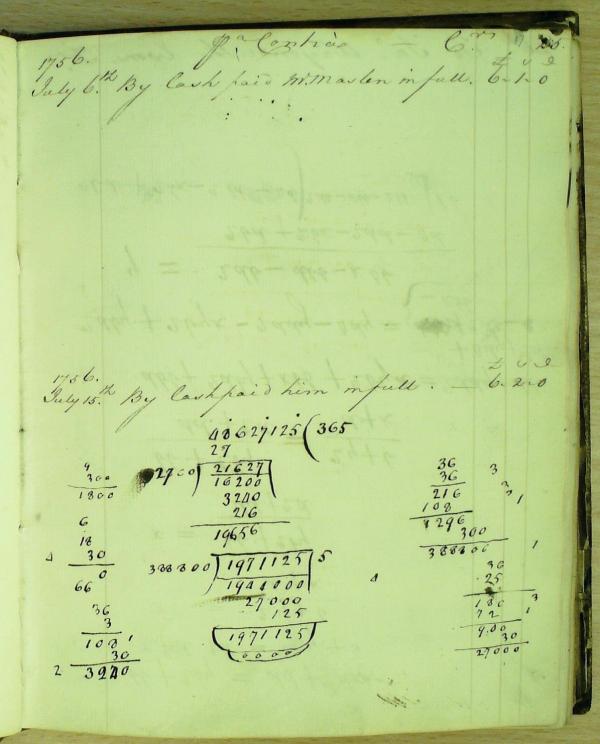 Pr Contra Crr
1756. £ s d
July 6.th By Cash paid Mr. Maslen in full. 6-1-0
1756. £ s d
July 15.th By Cash paid him in full. — 6-2-0
48627125 ( 365
27
2700 ) 21627
16200
3240
216
19656
388800 ) 1971125 5
1944000
27000
125
1971125
0000
9
300
1800
6
18
30
0
66
36
3
108 1
30
2 3240
36 3
36
216 3
108 1
1296
300
388800 1
36
25
180 3
72 1
900
30
27000